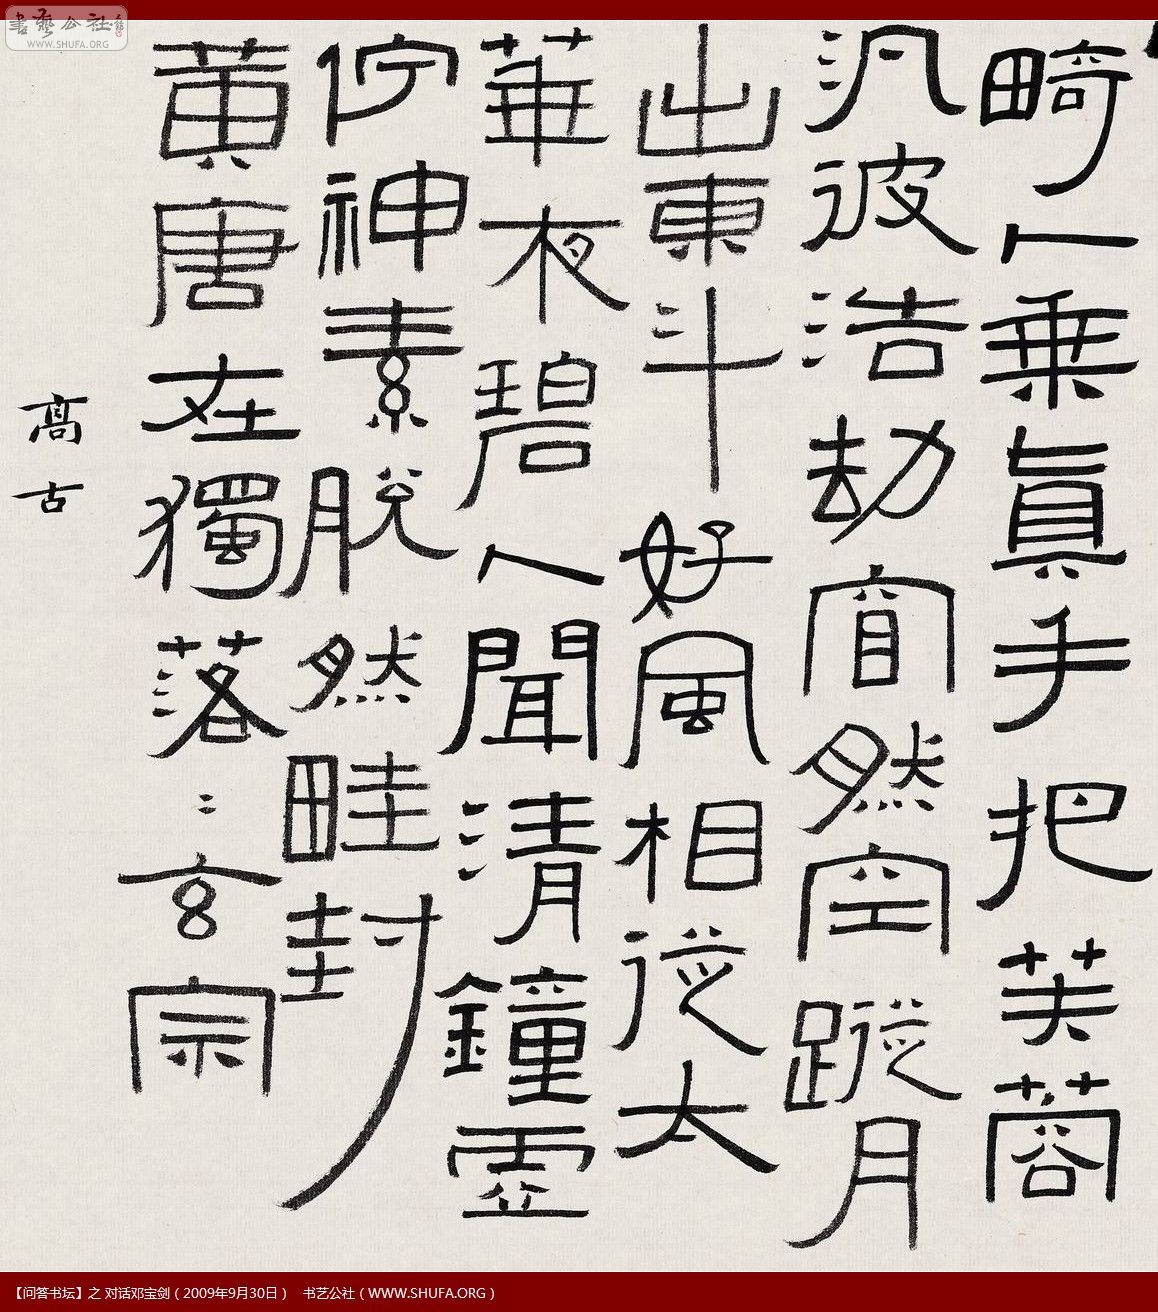 書藝公社
WWW.SHUFA.ORG
畸人乗眞手把芙蓉
汎彼浩劫窅然空蹤月
出東斗好風相從太
華夜碧人聞清鐘虛
佇神素脱然畦封
黄唐在獨落〻玄宗
高古
【问答书坛】之 对话邓宝剑（2009年9月30日） 书艺公社（WWW.SHUFA.ORG）